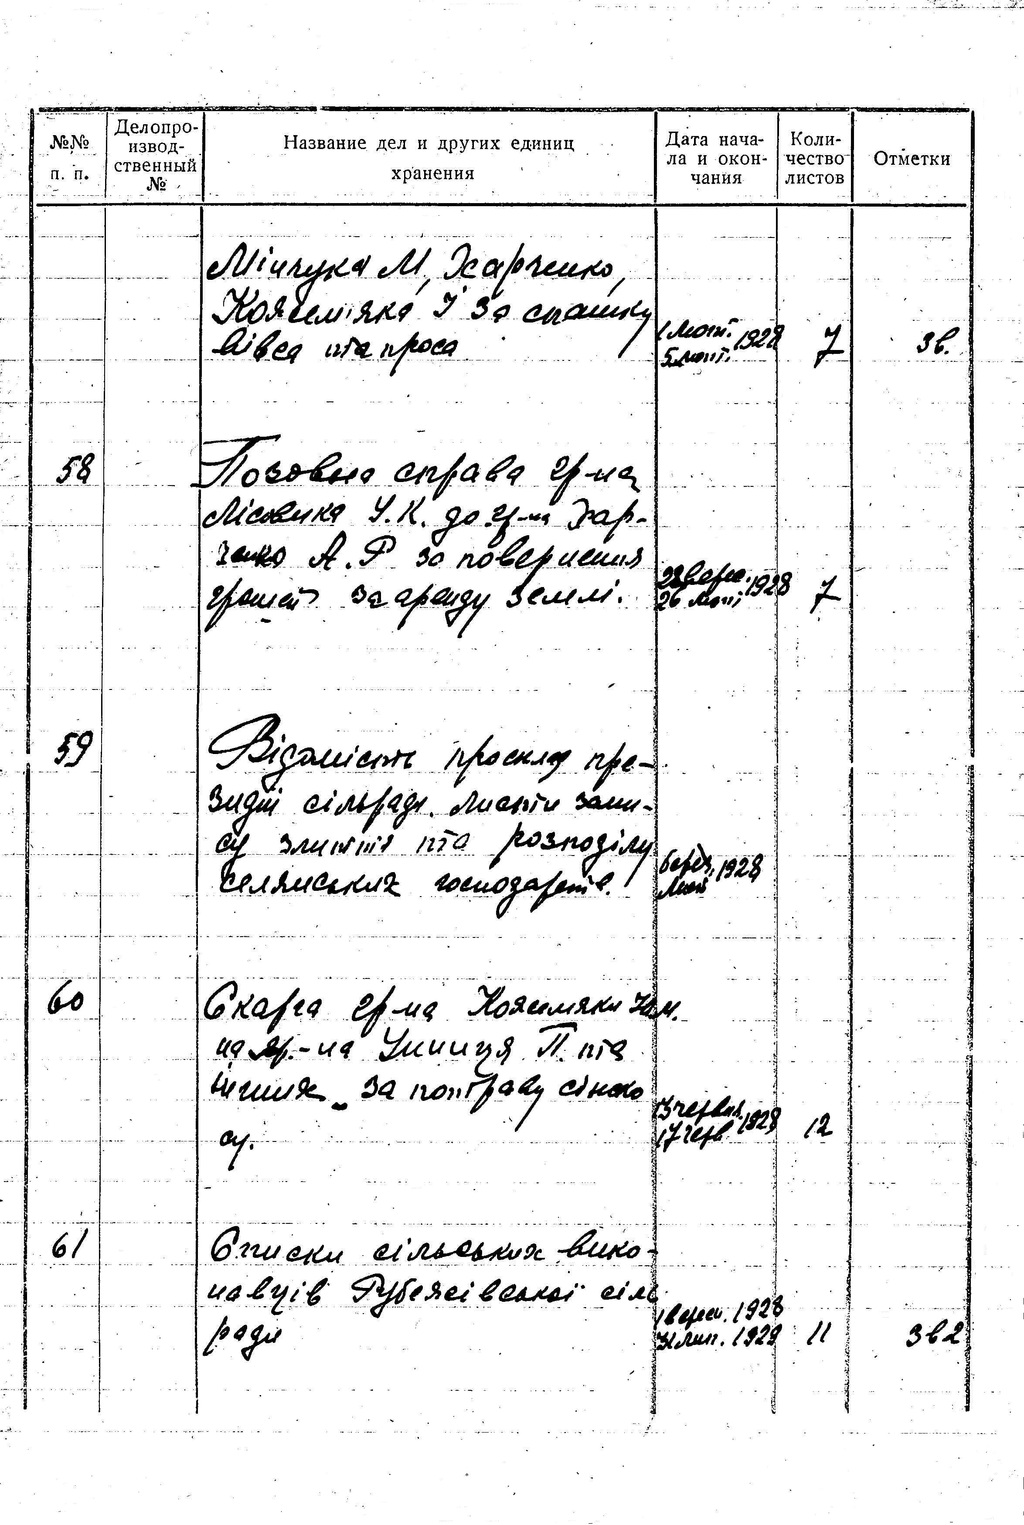 №№ п. п.
Делопро-
извод-
ственный
№
Название дел и других единиц
хранения
Дата нача-
ла и окон-
чания
Коли-
чество
листов
Отметки
М, Харченко,
Кожем'яка І за спашку
вівса та проса
1 лют.
5 лют. 1928
7
Зв.
58
Позовна справа гр-на
Лісовика У.К. до гр-на Хар-
ченко А.Р за повернення
грошей за аренду землі.
1928
26 лют
7
59
Відомість про склад пре-
зидії сільради. Листи запи-
су та розподілу
селянських господарств.
берез. 1928
60
Скарга гр-на Кожемяки
на гр.-на П. та
інших за потраву сіноко
су.
13 червня
17 черв 1928
12
61
Списки сільських вико-
навців сіль
ради
1 верес. 1928
31 лип. 1929
11
Зв 2